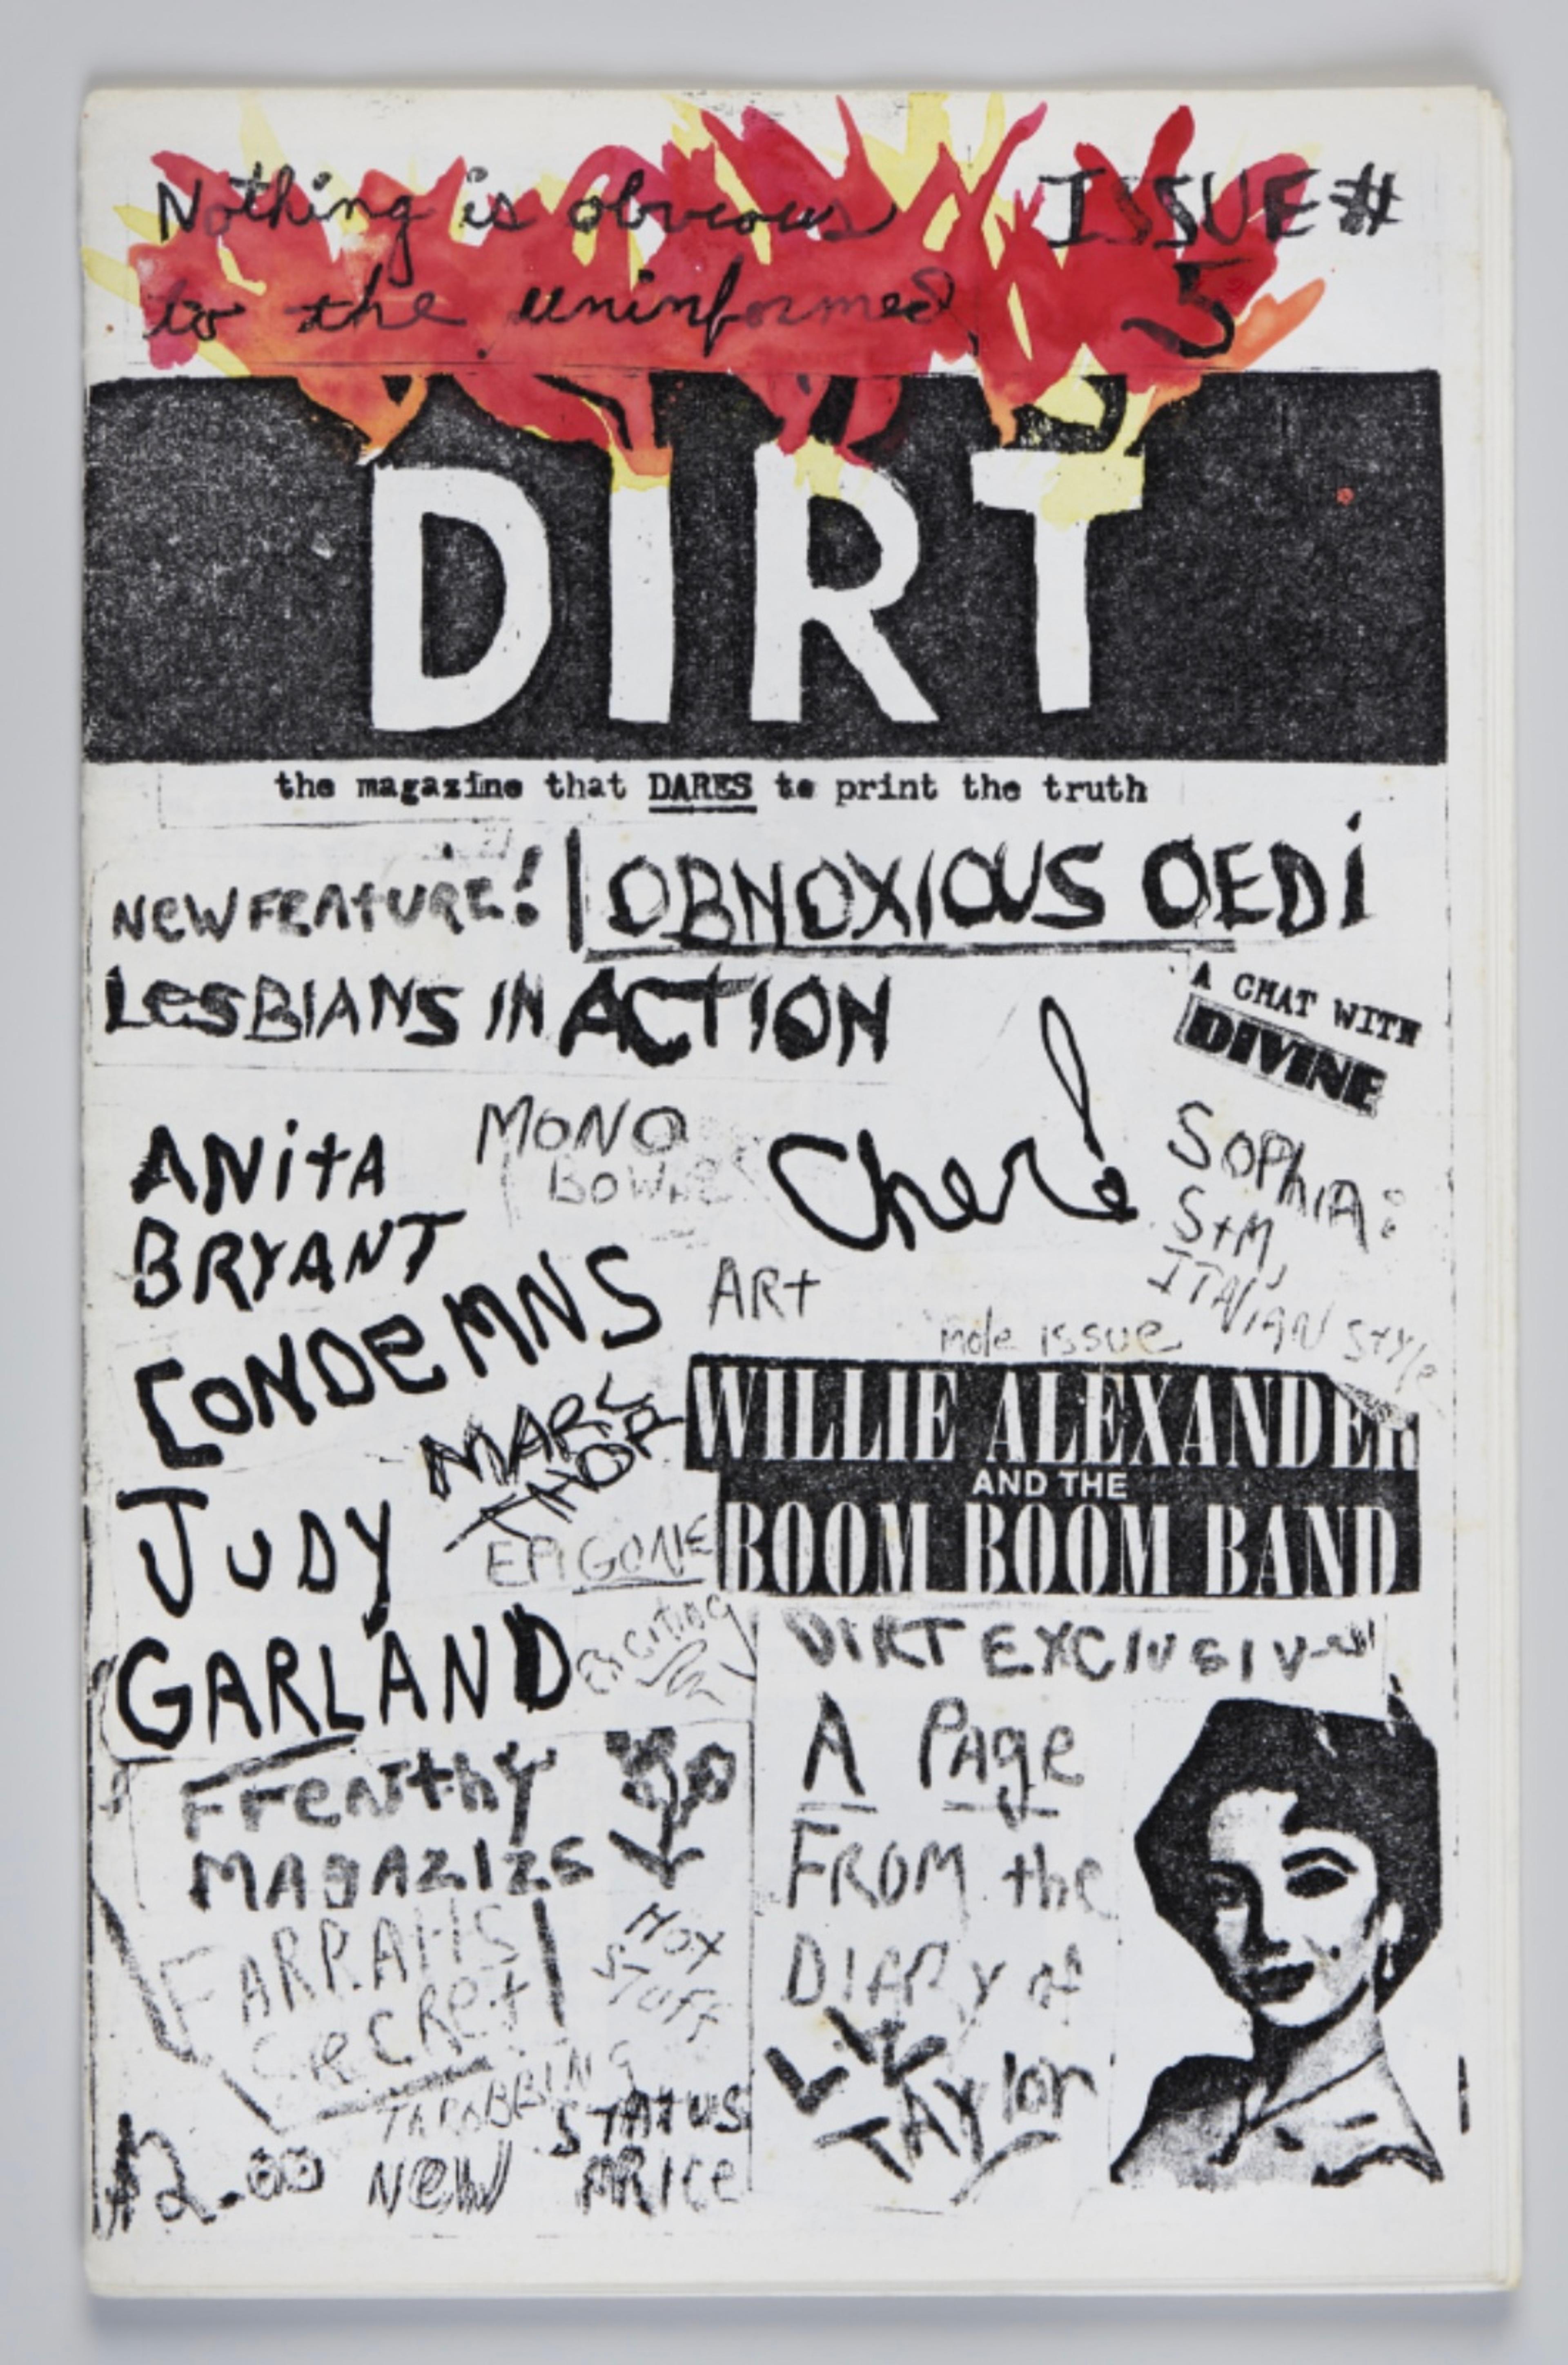 Nothing is obvious
to the uninformed
ISSUE #
5
DIRT
the magazine that DARES to print the truth
NEW FEAtURE!
OBNOXIOUS OEDI
LesBIANS IN ACTION
A CHAT WITH
DIVINE
ANitA
BRYANT
CONDeMNS
JUDY
GARLAND
MONO
Cher!
SOPhiA:
S+M,
ITALIAN StYle
ARt
mole issue
MARK
EPIGONE
exciting
WILLIE ALEXANDER
AND THE
BOOM BOOM BAND
DIRT EXCLUSIV
A PAge
FROM the
DIARY of
LIZ
TAYlor
FARRAHS
SeCRet
HOT
STUFF
$2.00
NeW
STATUS
PRICe